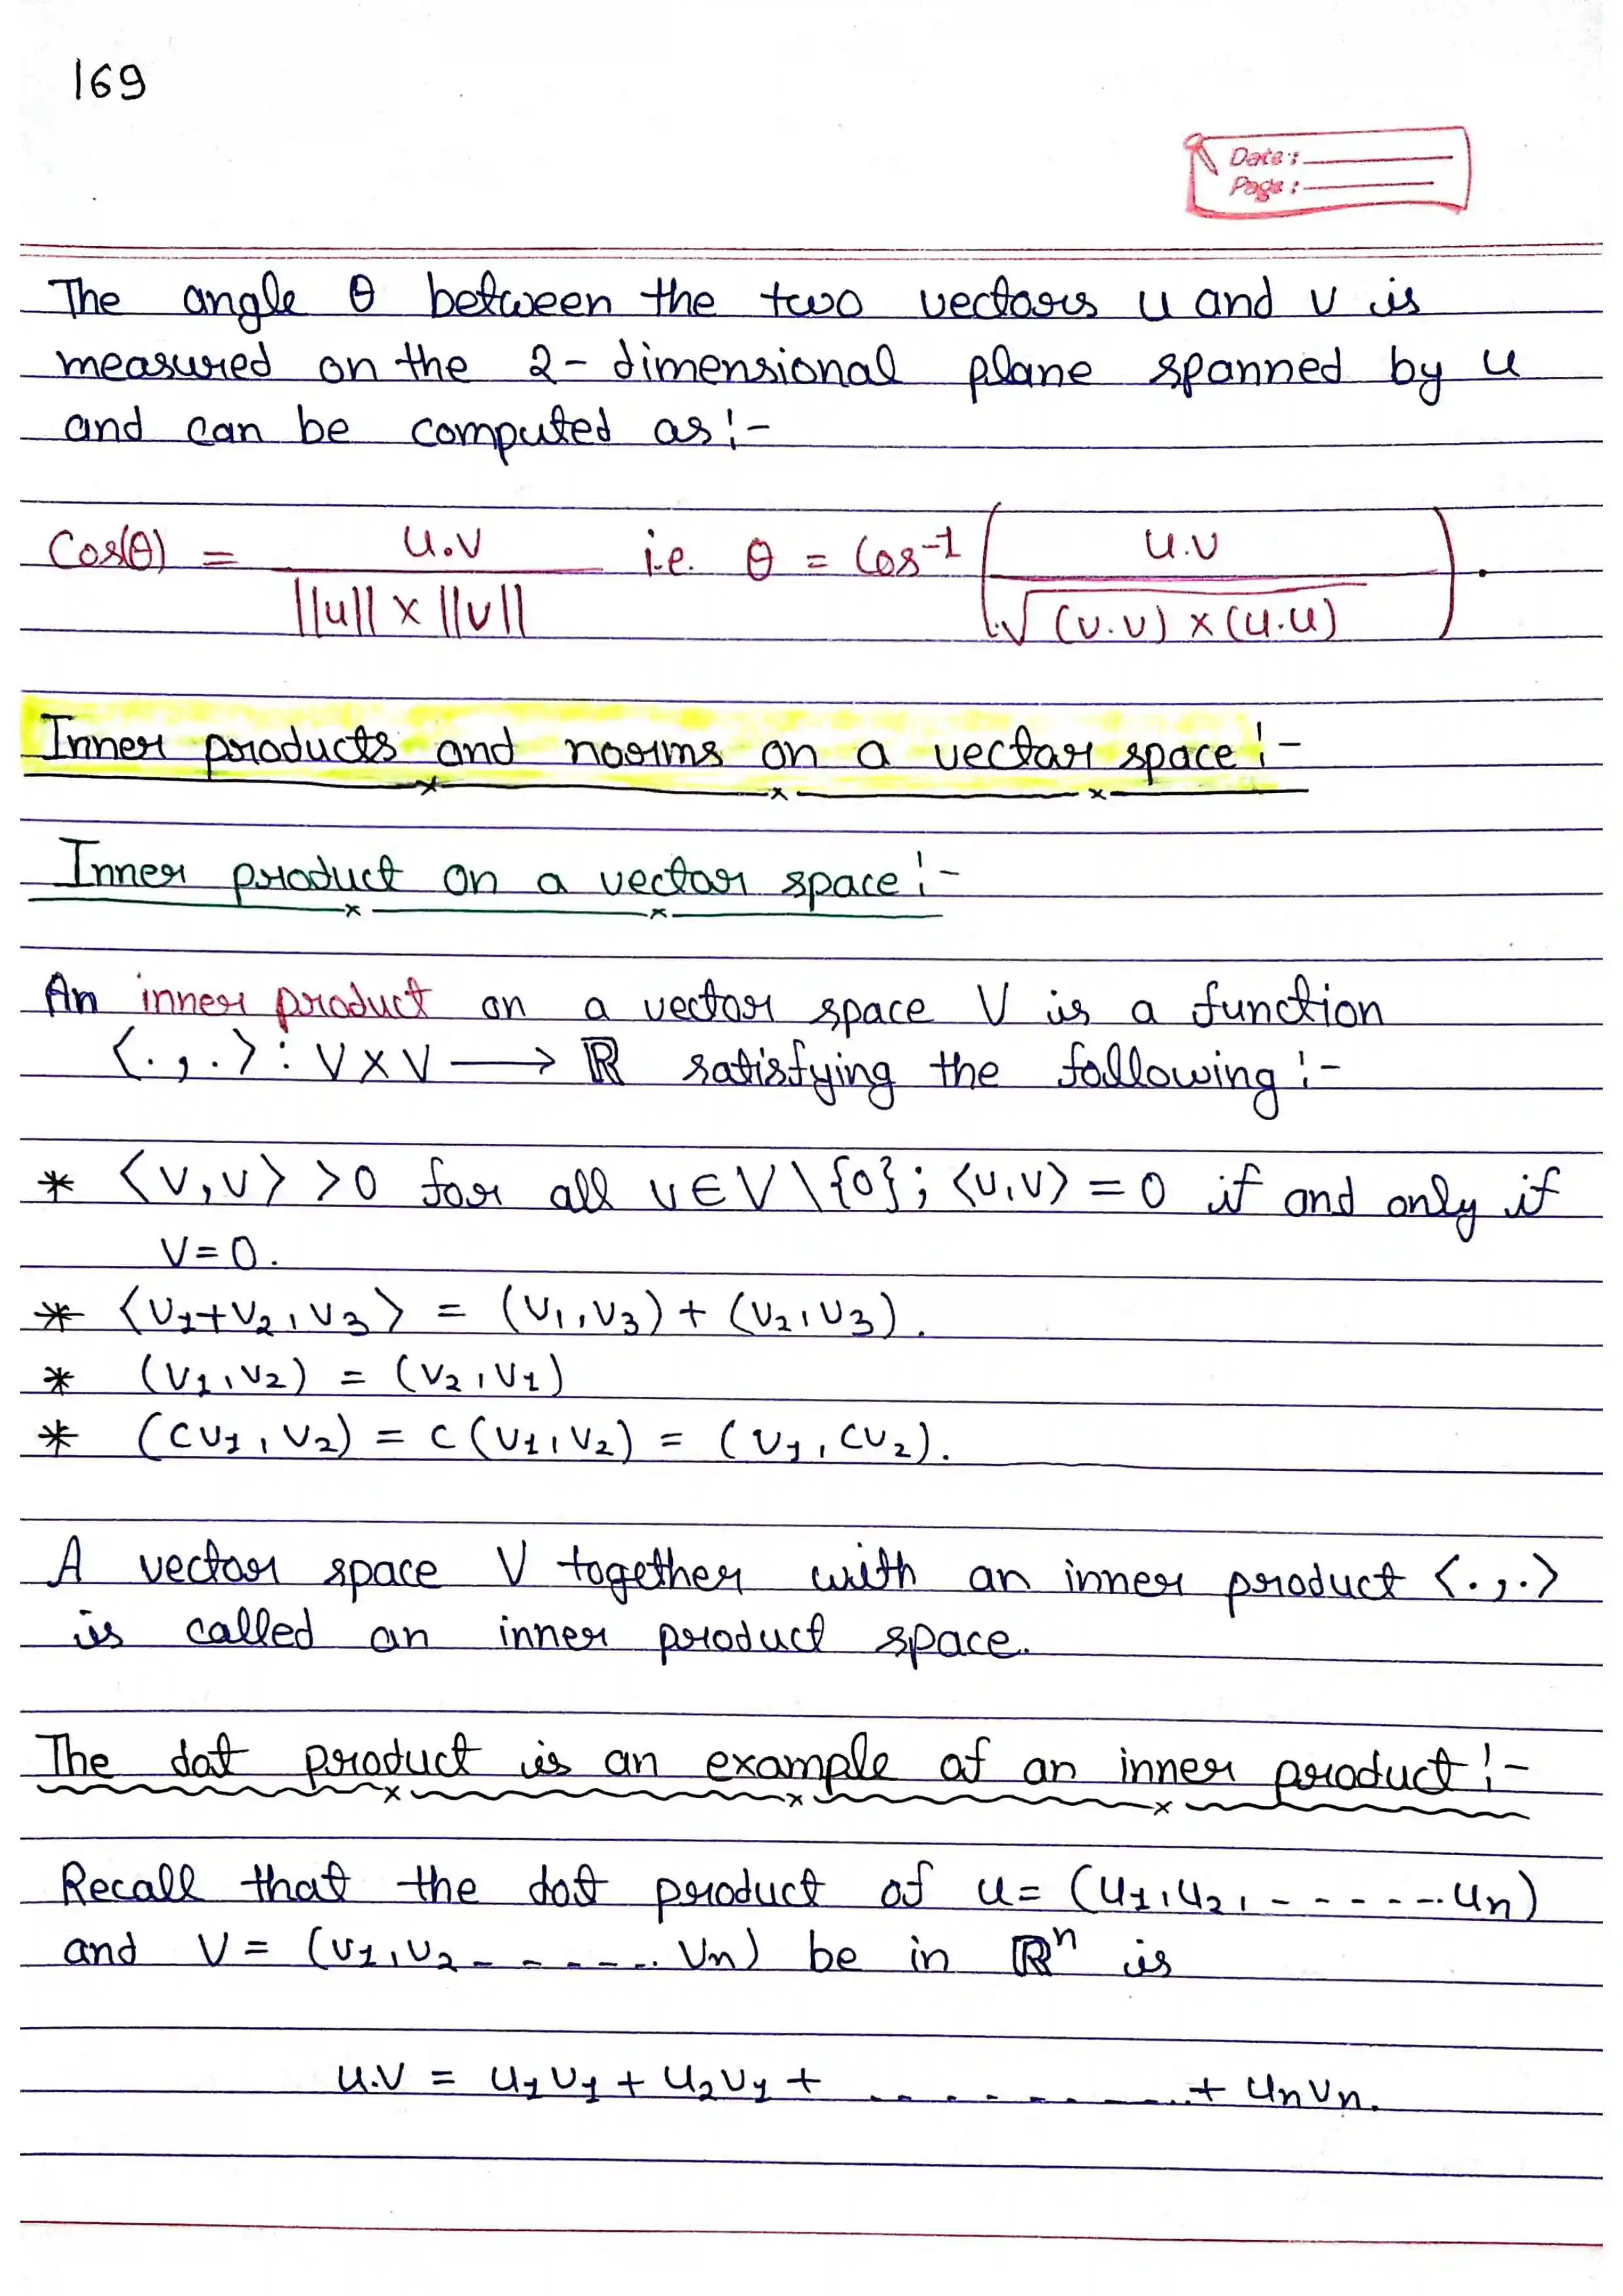 169
Date:
Page:
The angle θ between the two vectors u and v is
measured on the 2-dimensional plane spanned by u
and can be computed as:-
Cos(θ) = u.v / ||u|| x ||v|| i.e. θ = Cos⁻¹ ( u.v / √(v.v) x (u.u) ).
Inner products and norms on a vector space:-
Inner product on a vector space:-
An inner product on a vector space V is a function
⟨.,.⟩: V x V ⟶ ℝ satisfying the following:-
* ⟨v,v⟩ >0 for all v∈V\{0}; ⟨v,v⟩ = 0 if and only if
V=0.
* ⟨v₁+v₂,v₃⟩ = (v₁,v₃) + (v₂,v₃).
* (v₁,v₂) = (v₂,v₁)
* (cv₁,v₂) = c(v₁,v₂) = (v₁,cv₂).
A vector space V together with an inner product ⟨.,.⟩
is called an inner product space.
The dot product is an example of an inner product:-
Recall that the dot product of u= (u₁,u₂,------.un)
and V= (v₁,v₂------. vn) be in ℝⁿ is
u.v = u₁v₁ + u₂v₁ + ----------+ unvn.